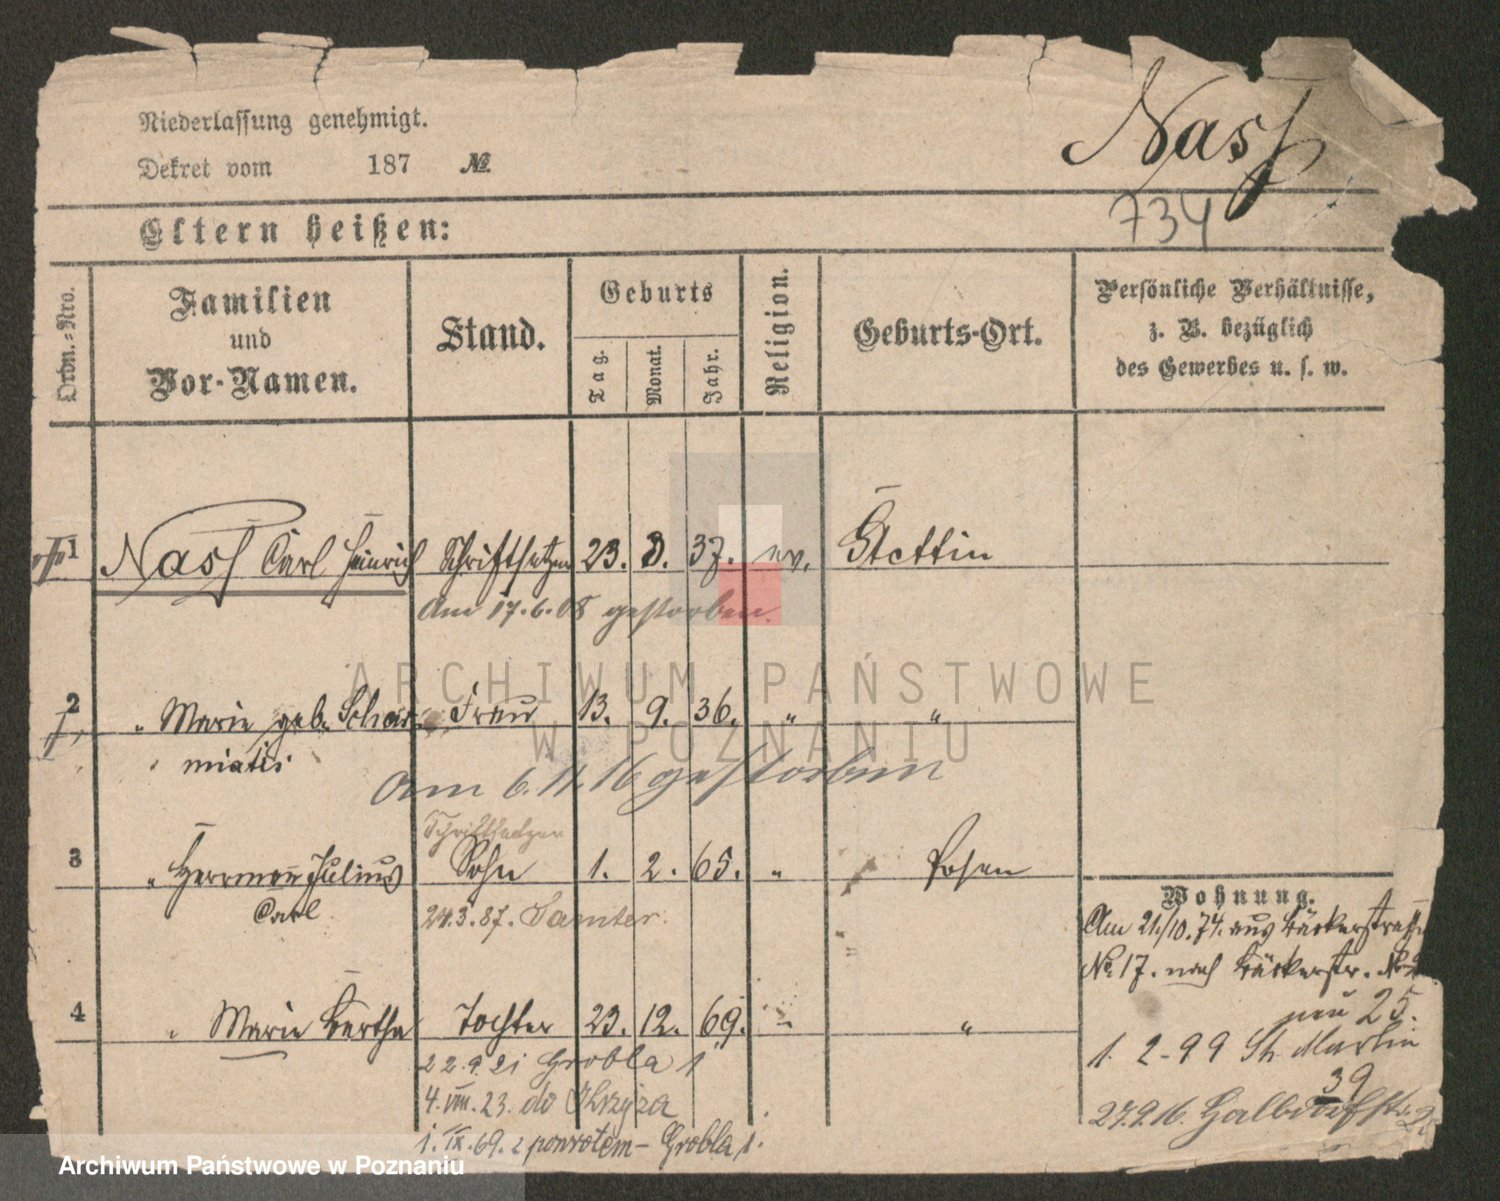 Niederlassung genehmigt.
Dekret vom 187 №
Nass
734
Eltern heißen:
Ordn.-Nro.
Familien
und
Vor-Namen.
Stand.
Geburts
Tag.
Monat.
Jahr.
Religion.
Geburts-Ort.
Persönliche Verhältnisse,
z. B. bezüglich
des Gewerbes u. s. w.
1 Nass Carl Heinrich Schriftsetzer 23. 8. 37. ev. Stettin
Am 17.6.08 gestorben.
2 " Marie geb. Schar- Frau 13. 9. 36. " "
miatis
Am 6.11.16 gestorben
Schriftsetzer
3 " Herrmann Julius Sohn 1. 2. 65. " Posen
Carl
24.3.87. Samter.
4 " Marie Bertha Tochter 23. 12. 69. " "
22.9.21 Grobla 1
4.VIII.23. do
z powrotem - Grobla 1.
Wohnung.
Am 21./10.74. aus Bäckerstraße
No. 17. nach Bäckerstr. No
neu 25.
1. 2-99 St. Martin
39
27.9.16. Halbdorfstr.
ARCHIWUM PAŃSTWOWE
W POZNANIU
Archiwum Państwowe w Poznaniu